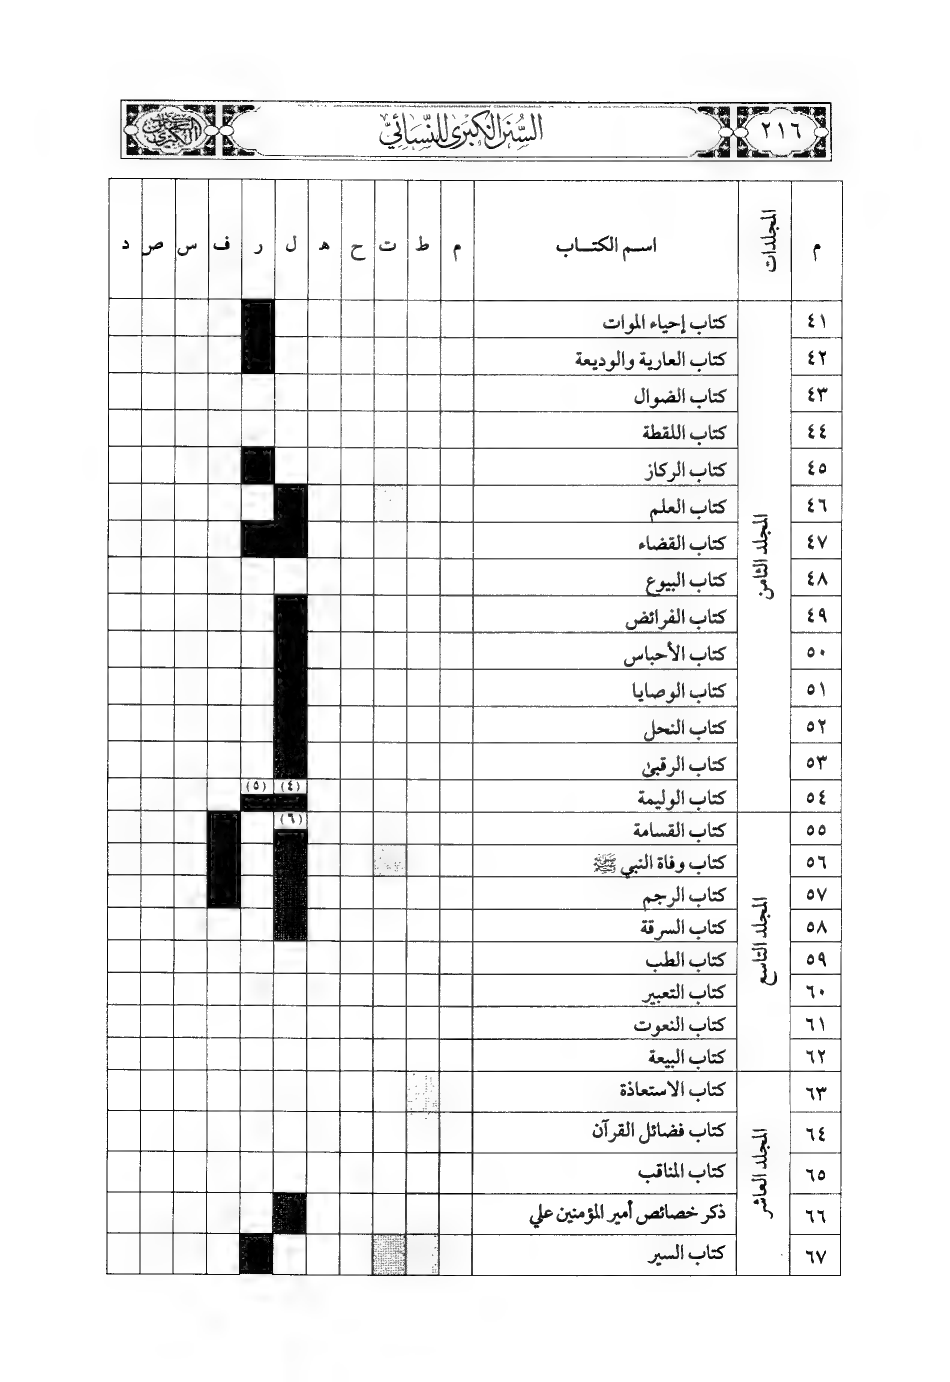 ٢١٦
السُّنَنُ الكُبْرَى لِلنَّسَائِيِّ
م المجلدات اسم الكتاب م ط ت ح هـ ل ر ف س ص د
المجلد الثامن
٤١ كتاب إحياء الموات
٤٢ كتاب العارية والوديعة
٤٣ كتاب الضوال
٤٤ كتاب اللقطة
٤٥ كتاب الركاز
٤٦ كتاب العلم
٤٧ كتاب القضاء
٤٨ كتاب البيوع
٤٩ كتاب الفرائض
٥٠ كتاب الأحباس
٥١ كتاب الوصايا
٥٢ كتاب النحل
٥٣ كتاب الرقبى
٥٤ كتاب الوليمة (٤) (٥)
المجلد التاسع
٥٥ كتاب القسامة (٦)
٥٦ كتاب وفاة النبي ﷺ
٥٧ كتاب الرجم
٥٨ كتاب السرقة
٥٩ كتاب الطب
٦٠ كتاب التعبير
٦١ كتاب النعوت
٦٢ كتاب البيعة
المجلد العاشر
٦٣ كتاب الاستعاذة
٦٤ كتاب فضائل القرآن
٦٥ كتاب المناقب
٦٦ ذكر خصائص أمير المؤمنين علي
٦٧ كتاب السير